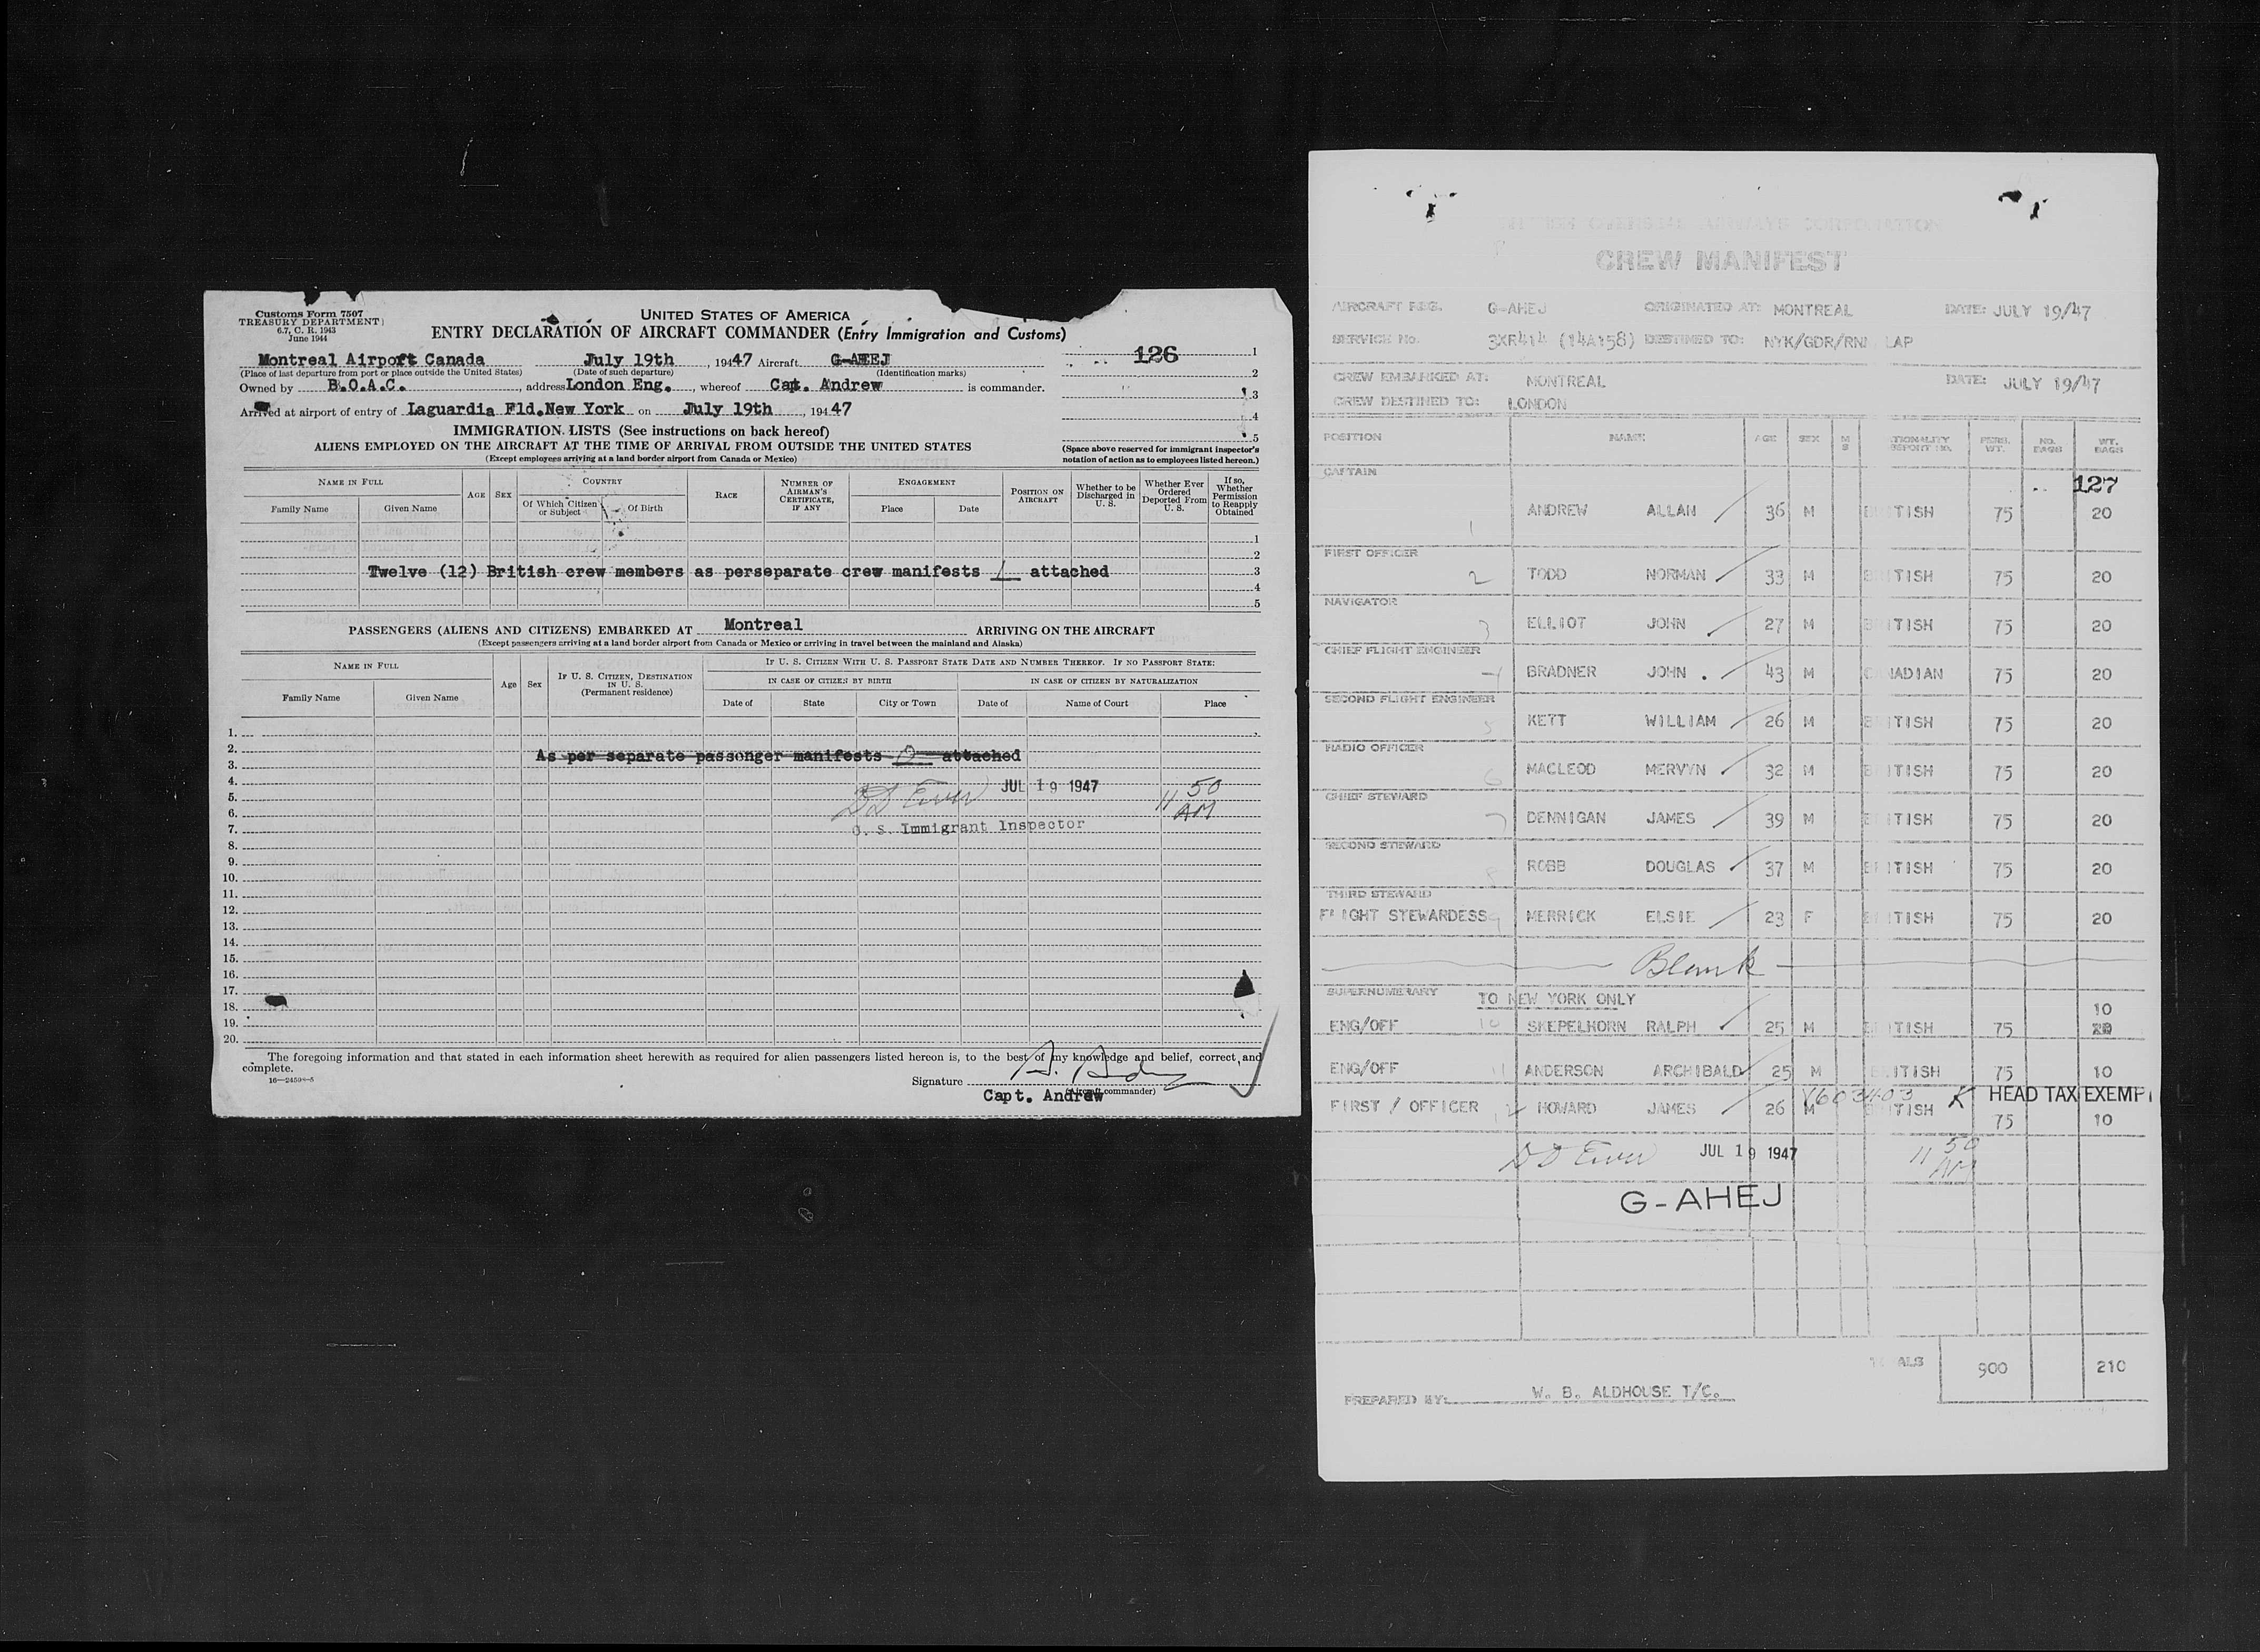 Customs Form 7507
TREASURY DEPARTMENT
6.7, C. R. 1943
June 1944
UNITED STATES OF AMERICA
ENTRY DECLARATION OF AIRCRAFT COMMANDER (Entry Immigration and Customs)
Montreal Airport Canada July 19th, 1947 Aircraft G-AHEJ
126
1
(Place of last departure from port or place outside the United States) (Date of such departure) (Identification marks)
2
Owned by B.O.A.C., address London Eng., whereof Capt. Andrew is commander.
3
Arrived at airport of entry of Laguardia Fld. New York on July 19th, 1947
4
IMMIGRATION LISTS (See instructions on back hereof)
5
ALIENS EMPLOYED ON THE AIRCRAFT AT THE TIME OF ARRIVAL FROM OUTSIDE THE UNITED STATES
(Except employees arriving at a land border airport from Canada or Mexico)
(Space above reserved for immigrant inspector's
notation of action as to employees listed hereon.)
NAME IN FULL AGE SEX COUNTRY RACE NUMBER OF AIRMAN'S CERTIFICATE, IF ANY ENGAGEMENT POSITION ON AIRCRAFT Whether to be Discharged in U. S. Whether Ever Ordered Deported From U. S. If so, Whether Permission to Reapply Obtained
Family Name Given Name Of Which Citizen or Subject Of Birth Place Date
1
2
Twelve (12) British crew members as perseparate crew manifests 1 attached 3
4
5
PASSENGERS (ALIENS AND CITIZENS) EMBARKED AT Montreal ARRIVING ON THE AIRCRAFT
(Except passengers arriving at a land border airport from Canada or Mexico or arriving in travel between the mainland and Alaska)
NAME IN FULL Age Sex IF U. S. CITIZEN, DESTINATION IN U. S. (Permanent residence) IF U. S. CITIZEN WITH U. S. PASSPORT STATE DATE AND NUMBER THEREOF. IF NO PASSPORT STATE:
IN CASE OF CITIZEN BY BIRTH IN CASE OF CITIZEN BY NATURALIZATION
Family Name Given Name Date of State City or Town Date of Name of Court Place
1.
2.
As per separate passonger manifests 0 attached
3.
4. JUL 19 1947 11 50
5.
6. AM
7. U. S. Immigrant Inspector
8.
9.
10.
11.
12.
13.
14.
15.
16.
17.
18.
19.
20.
The foregoing information and that stated in each information sheet herewith as required for alien passengers listed hereon is, to the best of my knowledge and belief, correct and
complete.
Signature
(Aircraft commander)
Capt. Andrew
BRITISH OVERSEAS AIRWAYS CORPORATION
CREW MANIFEST
AIRCRAFT REG. G-AHEJ ORIGINATED AT: MONTREAL DATE: JULY 19/47
SERVICE No. 3XR414 (14A158) DESTINED TO: NYK/GDR/RNN LAP
CREW EMBARKED AT: MONTREAL DATE: JULY 19/47
CREW DESTINED TO: LONDON
POSITION NAME AGE SEX M S TIONALITY SSPORT NO. PERS. WT. NO. BAGS WT. BAGS
CAPTAIN
127
1 ANDREW ALLAN 36 M BRITISH 75 20
FIRST OFFICER
2 TODD NORMAN 33 M BRITISH 75 20
NAVIGATOR
3 ELLIOT JOHN 27 M BRITISH 75 20
CHIEF FLIGHT ENGINEER
4 BRADNER JOHN . 43 M CANADIAN 75 20
SECOND FLIGHT ENGINEER
5 KETT WILLIAM 26 M BRITISH 75 20
RADIO OFFICER
6 MACLEOD MERVYN 32 M BRITISH 75 20
CHIEF STEWARD
7 DENNIGAN JAMES 39 M BRITISH 75 20
SECOND STEWARD
8 ROBB DOUGLAS 37 M BRITISH 75 20
THIRD STEWARD
FLIGHT STEWARDESS 9 MERRICK ELSIE 23 F BRITISH 75 20
Blank
SUPERNUMERARY TO NEW YORK ONLY
10
ENG/OFF 10 SKEPELHORN RALPH 25 M BRITISH 75 20
ENG/OFF 11 ANDERSON ARCHIBALD 25 M BRITISH 75 10
V603403 K HEAD TAX EXEMPT
FIRST / OFFICER 12 HOWARD JAMES 26 M BRITISH 75 10
JUL 19 1947 11 50 AM
G-AHEJ
TOTALS 900 210
PREPARED BY: W. B. ALDHOUSE T/C.